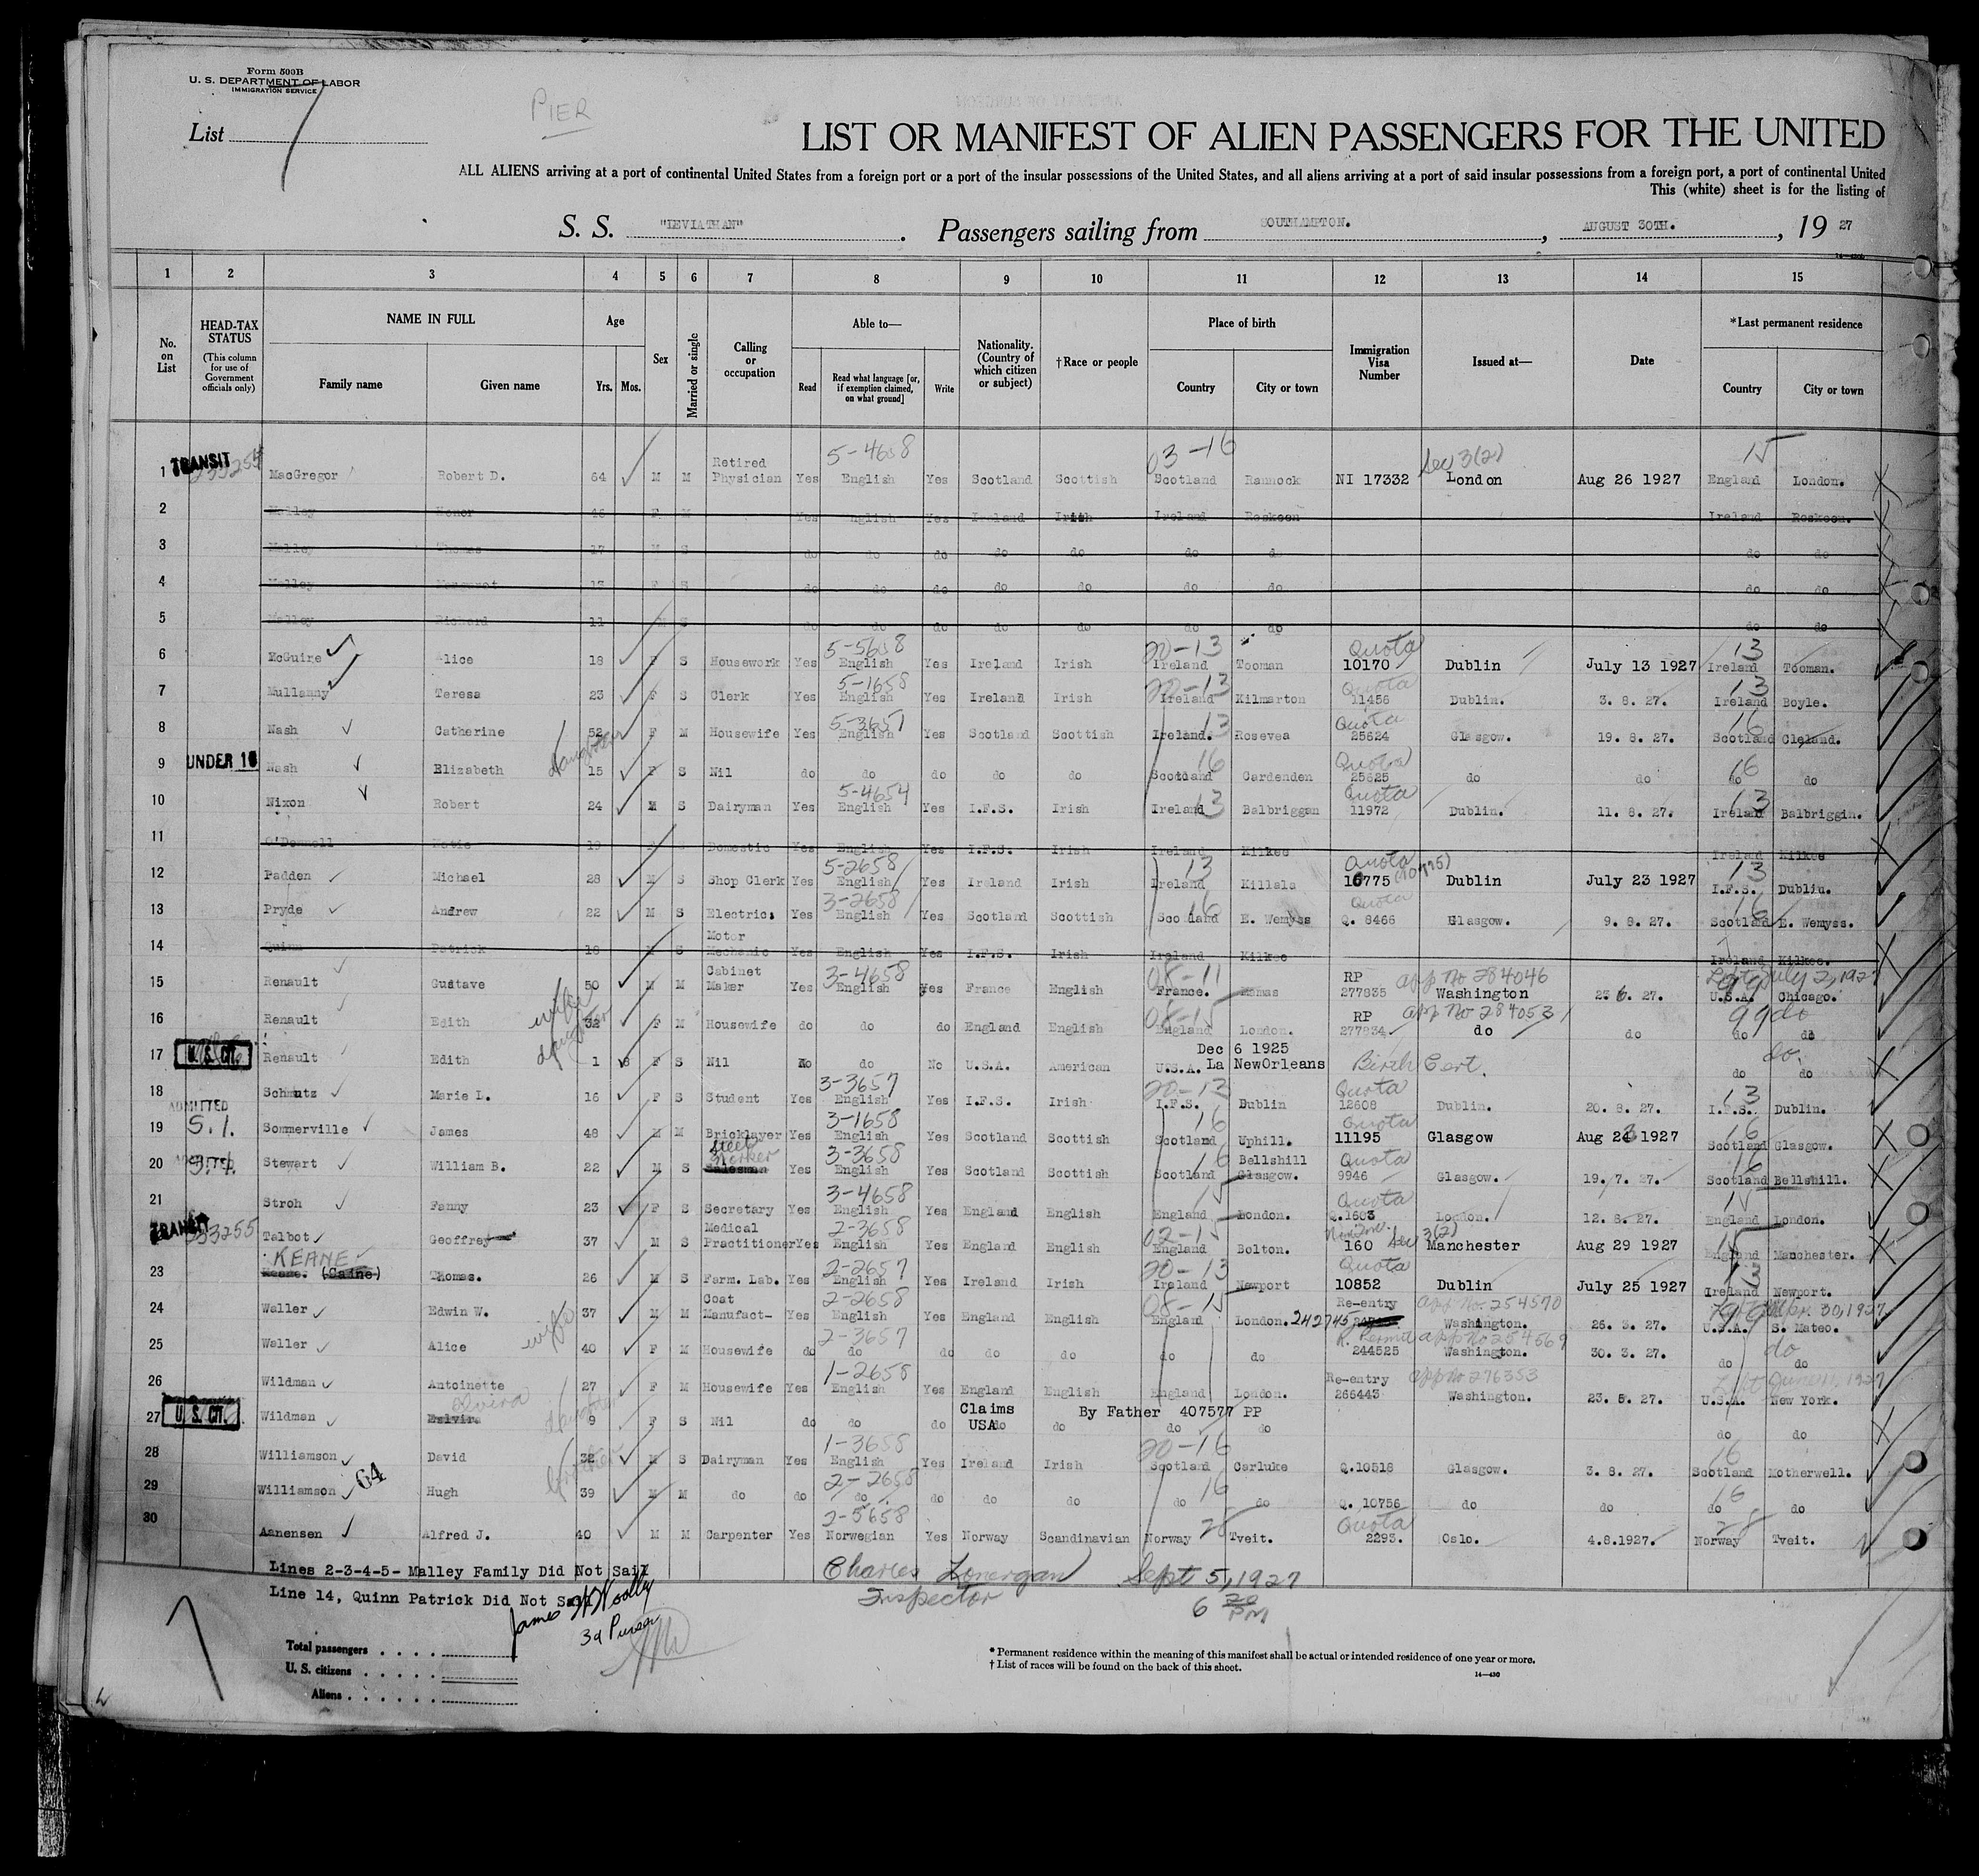 Form 500B
U. S. DEPARTMENT OF LABOR
IMMIGRATION SERVICE
PIER
List 7
LIST OR MANIFEST OF ALIEN PASSENGERS FOR THE UNITED
ALL ALIENS arriving at a port of continental United States from a foreign port or a port of the insular possessions of the United States, and all aliens arriving at a port of said insular possessions from a foreign port, a port of continental United
This (white) sheet is for the listing of
S. S. "LEVIATHAN". Passengers sailing from SOUTHAMPTON. , AUGUST 30TH. , 19 27
1 2 3 4 5 6 7 8 9 10 11 12 13 14 15
No. on List
HEAD-TAX STATUS (This column for use of Government officials only)
NAME IN FULL Family name Given name
Age Yrs. Mos.
Sex
Married or single
Calling or occupation
Able to— Read Read what language [or, if exemption claimed, on what ground] Write
Nationality. (Country of which citizen or subject)
†Race or people
Place of birth Country City or town
Immigration Visa Number
Issued at—
Date
*Last permanent residence Country City or town
5-4658 03-16 Sec 3(2) 15
1 TRANSIT MacGregor Robert D. 64 M M Retired Physician Yes English Yes Scotland Scottish Scotland Rannock NI 17332 London Aug 26 1927 England London.
2 Malley Honor 46 F M Yes English Yes Ireland Irish Ireland Roskeen Ireland Roskeen.
3 Malley Thomas 17 M S do do do do do do do do do
4 Malley Margaret 13 F S do do do do do do do do do
5 Malley Richard 11 M S do do do do do do do do do
5-5658 20-13 Quota 13
6 McGuire Alice 18 F S Housework Yes English Yes Ireland Irish Ireland Tooman 10170 Dublin July 13 1927 Ireland Tooman.
5-1658 20-13 Quota 13
7 Mullanny Teresa 23 F S Clerk Yes English Yes Ireland Irish Ireland Kilmarton 11456 Dublin. 3. 8. 27. Ireland Boyle.
5-3657 13 Quota 16
8 Nash Catherine 52 F M Housewife Yes English Yes Scotland Scottish Ireland. Rosevea 25624 Glasgow. 19. 8. 27. Scotland Cleland.
daughter 16 Quota 16
9 UNDER 16 Nash Elizabeth 15 F S Nil do do do do do Scotland Cardenden 25625 do do do do
5-4654 13 Quota 13
10 Nixon Robert 24 M S Dairyman Yes English Yes I.F.S. Irish Ireland Balbriggan 11972 Dublin. 11. 8. 27. Ireland Balbriggin.
11 O'Donnell 19 S Domestic Yes English Yes I.F.S. Irish Ireland Kilkee Ireland Kilkee
5-2658 13 Quota (10775) 13
12 Padden Michael 28 M S Shop Clerk Yes English Yes Ireland Irish Ireland Killala 10775 Dublin July 23 1927 I.F.S. Dublin.
3-2658 16 Quota 16
13 Pryde Andrew 22 M S Electric. Yes English Yes Scotland Scottish Scotland E. Wemyss Q. 8466 Glasgow. 9. 8. 27. Scotland E. Wemyss.
14 Quinn Patrick 18 M S Motor Mechanic Yes English Yes I.F.S. Irish Ireland Kilkee Ireland Kilkee.
3-4658 08-11 app no 284046 July 2, 1927
15 Renault Gustave 50 M M Cabinet Maker Yes English Yes France English France. Mamas RP 277835 Washington 23 6. 27. U.S.A. Chicago.
wife 08-15 app no 284053 99 do
16 Renault Edith 32 F M Housewife do do do England English England London. RP 277834 do do do do
daughter Dec 6 1925 do.
17 U.S. CIT. Renault Edith 1 8 F S Nil No do No U.S.A. American U.S.A. La NewOrleans Birth Cert. do do
3-3657 20-13 Quota 13
18 Schmutz Marie L. 16 F S Student Yes English Yes I.F.S. Irish I.F.S. Dublin 12608 Dublin. 20. 8. 27. I.F.S. Dublin.
3-1658 16 Quota 16
19 ADMITTED S.I. Sommerville James 48 M M Bricklayer Yes English Yes Scotland Scottish Scotland Uphill. 11195 Glasgow Aug 23 1927 Scotland Glasgow.
Steel Worker 3-3658 16 Bellshill Quota 16
20 ADMITTED S.I. Stewart William B. 22 M S Salesman Yes English Yes Scotland Scottish Scotland Glasgow. 9946 Glasgow. 19. 7. 27. Scotland Bellshill.
3-4658 15 Quota 15
21 Stroh Fanny 23 F S Secretary Yes English Yes England English England London. Q.1683 London. 12. 8. 27. England London.
2-3658 02-15 Sec 3(2) 15
TRANSIT Talbot Geoffrey 37 M S Medical Practitioner Yes English Yes England English England Bolton. 160 Manchester Aug 29 1927 England Manchester.
KEANE 2-2657 20-13 Quota
23 Keane. (Caine) Thomas. 26 M S Farm. Lab. Yes English Yes Ireland Irish Ireland Newport 10852 Dublin July 25 1927 Ireland Newport.
2-2658 08-15 Re-entry app no. 254570 30, 1927
24 Waller Edwin W. 37 M M Coat Manufact- Yes English Yes England English England London. 242745 Washington. 26. 3. 27. U.S.A. S. Mateo.
wife 2-3657 R. Permit app no 254569 do
25 Waller Alice 40 F M Housewife do do do do do do do 244525 Washington. 30. 3. 27. do do
1-2658 Re-entry app no 276353 June 11, 1927
26 Wildman Antoinette 27 F M Housewife Yes English Yes England English England London. 266443 Washington. 23. 5. 27. U.S.A. New York.
Elvira daughter Claims USA By Father 407577 PP
27 U.S. CIT. Wildman Eslvira 9 F S Nil do do do do do do do do do
1-3658 20-16 16
28 Williamson David 32 M S Dairyman Yes English Yes Ireland Irish Scotland Carluke Q.10518 Glasgow. 3. 8. 27. Scotland Motherwell.
64 brother 2-2658 16 16
29 Williamson Hugh 39 M M do do do do do do do do Q. 10756 do do do do
2-5658 28 Quota 28
30 Aanensen Alfred J. 40 M M Carpenter Yes Norwegian Yes Norway Scandinavian Norway Tveit. 2293. Oslo. 4.8.1927. Norway Tveit.
Lines 2-3-4-5- Malley Family Did Not Sail
Line 14, Quinn Patrick Did Not Sail
Charles Lonergan Sept 5, 1927
Inspector 6 PM
James Woolly
3d Purser
Total passengers . . . .
U. S. citizens . . . . .
Aliens . . . . . .
* Permanent residence within the meaning of this manifest shall be actual or intended residence of one year or more.
† List of races will be found on the back of this sheet.
14—430